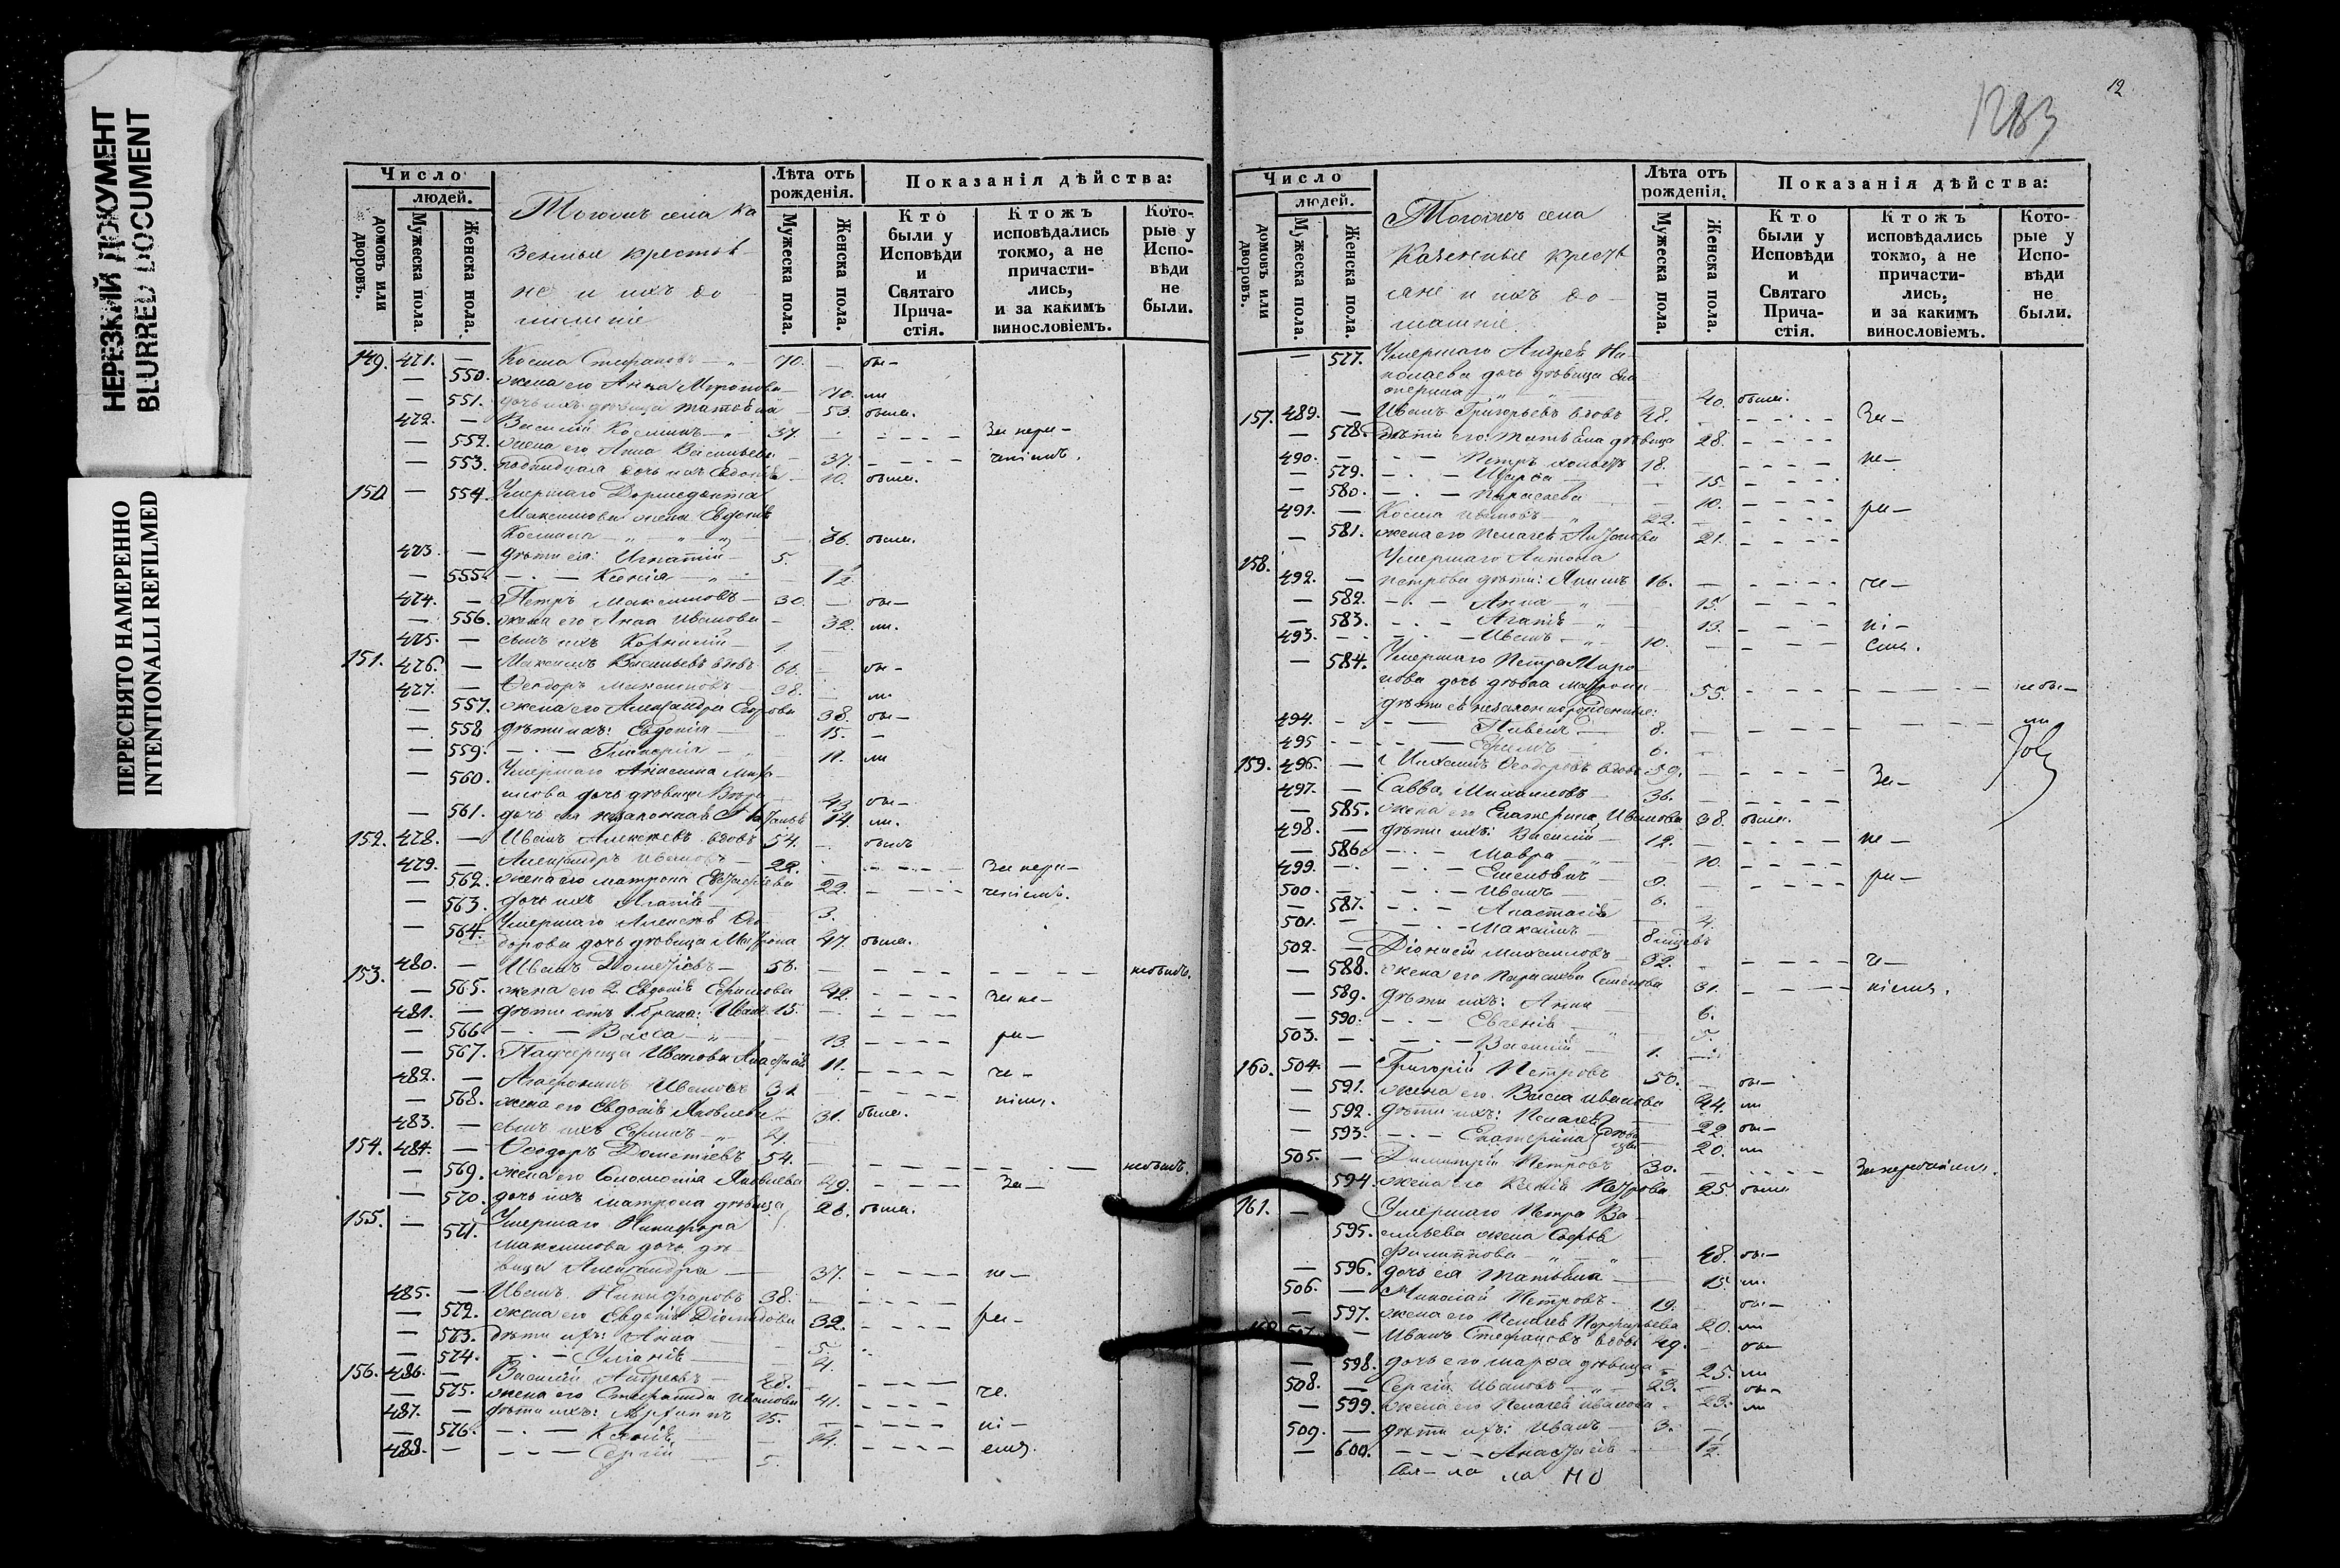 НЕРЕЗКИЙ ДОКУМЕНТ
BLURRED DOCUMENT
ПЕРЕСНЯТО НАМЕРЕННО
INTENTIONALLI REFILMED
Число
домовъ или дворовъ.
людей.
Мужеска пола.
Женска пола.
Тогожъ села Ка
зенные крестья-
не и ихъ до-
машніе
Лѣта отъ рожденія.
Мужеска пола.
Женска пола.
Показанія дѣйства:
Кто были у Исповѣди и Святаго Прича-стія.
Ктожъ исповѣдались токмо, а не причасти-лись, и за какимъ винословіемъ.
Кото-рые у Испо-вѣди не были.
149. 471. — Косма Стефановъ — 70. — бы-
— 550. жена его Анна Миронова — 70. ли
— 551. дочь ихъ дѣвица Татьяна — 53. была.
472. — Василій Косминъ — 37. — За нера-
— 552. жена его Анна Васильева — 37. ченіемъ.
— 553. дочь ихъ Евдокія — 10. была.
150 — 554. Умершаго Дормедонта
Максимова жена Евдокія
Космина — 36. была.
473. — дѣти ея: Игнатій — 5.
— 555. — Ксенія — 1½
474. — Петръ Максимовъ — 30. — бы-
— 556. жена его Анна Иванова — 32. ли.
475. — сынъ ихъ Корнилій — 1.
151. 476. — Максимъ Васильевъ вдовъ 66. — бы-
477. — Ѳеодоръ Максимовъ — 38. — ли
— 557. жена его Александра Егорова 38. бы-
— 558 дѣти ихъ: Евдокія — 15. —
— 559. — Гликерія — 11. ли
— 560. Умершаго
дочь дѣвица 43. бы-
— 561. дочь ея незаконная 14. ли.
152. 478. — Иванъ Алексѣевъ вдовъ 54. — былъ
479. — Александръ Ивановъ — 22. — За нера-
— 562. жена его Матрона 22. ченіемъ.
— 563. дочь ихъ Агапія — 3.
— 564. Умершаго Алексѣя Ѳео-
дорова дочь дѣвица Матрона 47. была.
153. 480. — Иванъ Дометіевъ — 56. — небылъ.
— 565. жена его 2. Евдокія Ефимова 42. За не-
481. — дѣти отъ 1. брака: Иванъ 15. —
— 566 — Васса — 13 ра-
— 567. Падчерица Иванова Анастасія 11. че-
482. — Ивановъ 31 —
— 568. жена его Евдокія Яковлева 31. была. ніем.
483. — сынъ ихъ Ефимъ 4. —
154. 484. — Ѳеодоръ Дометіевъ 54. — небылъ.
— 569. жена его Соломонія Яковлева 49. За —
— 570. дочь ихъ Матрона дѣвица 28. была.
155. — 571. Умершаго Никифора
Максимова дочь дѣ-
вица Александра — 37. не —
485. — Иванъ Никифоровъ 38. —
— 572. жена его Евдокія Діомидова 32. ра-
— 573. дѣти ихъ: Анна — 5.
— 574. — Уліанія — 4.
156. 486. — Василій Андреевъ — 48. —
— 575. жена его Степанида Иванова 41. че.
487. — дѣти ихъ: 15. —
— 576. — Ксенія — 14. ні-
488. — Сергій — 5. емъ.
12
1283
Число
домовъ или дворовъ.
людей.
Мужеска пола.
Женска пола.
Тогожъ села
Казенные кресть
яне и ихъ до-
машніе.
Лѣта отъ рожденія.
Мужеска пола.
Женска пола.
Показанія дѣйства:
Кто были у Исповѣди и Святаго Прича-стія.
Ктожъ исповѣдались токмо, а не причасти-лись, и за какимъ винословіемъ.
Кото-рые у Испо-вѣди не были.
— 577. Умершаго Андрея Ни-
колаева дочь дѣвица Ека-
терина 40. была.
157. 489. — Иванъ Григорьевъ вдовъ 48. — За —
— 578. дѣти его: Татьяна дѣвица 28.
490. — Петръ 18. не —
— 579. — Марѳа — 15.
— 580. — Параскева — 10.
491. — Косма Ивановъ 22. ра —
— 581. жена его Пелагея Антонова 21.
158. Умершаго Антона
492. — Петрова дѣти: Акимъ 16. — че —
— 582. — Анна — 15.
— 583. — Агапія — 13. ні —
493. — Иванъ — 10. — емъ.
— 584. Умершаго Петра Миро-
нова дочь дѣвка Матрона 55. не бы —
дѣти ея незаконнорожденные:
494. — 8. ли
495 — Ефимъ 6.
159. 496. — Михаилъ Ѳеодоровъ вдовъ 59. — За —
497. — Савва Михаиловъ 36. —
— 585. жена его Екатерина Иванова 38. была.
498. — дѣти ихъ: Василій 12. — не —
— 586. — Мавра — 10.
499. — 8. — ра —
500. — Иванъ — 6.
— 587. — Анастасія — 4.
501. — Максимъ — 8 мѣсяцевъ
502. — Діонисій Михаиловъ 32. — че —
— 588. жена его Параскева Семенова 31. ніемъ.
— 589. дѣти ихъ: Анна 6.
— 590. — Евгенія 5.
503. — Василій 1.
160. 504. — Григорій Петровъ 50. — бы —
— 591. жена его Васса Иванова 44. ли
— 592. дѣти ихъ: Пелагея 22 бы —
— 593. — Екатерина 20. ли
505. — Димитрій Петровъ 30. — За нераченіемъ.
594. жена его Ксенія Петрова 25. была
161. — Умершаго Петра Ва-
595. сильева жена Софья
Филиппова — 48. бы —
— 596. дочь ея Татьяна — 15. ли.
506. — Николай Петровъ — 19. — бы —
— 597. жена его Пелагея Порфирьева 20. ли
— Иванъ Стефановъ вдовъ 49. — бы
— 598. дочь его Марѳа дѣвица 25. ли
508. — Сергій Ивановъ 23. — бы —
— 599. жена его Пелагея Иванова 23. ли
509. — дѣти ихъ: Иванъ — 3. —
— 600. — Анастасія 1½